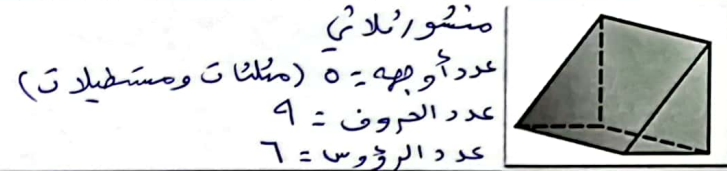 منشور ثلاثي
عدد أوجهه = ٥ (مثلثات ومستطيلات)
عدد الحروف = ٩
عدد الرؤوس = ٦